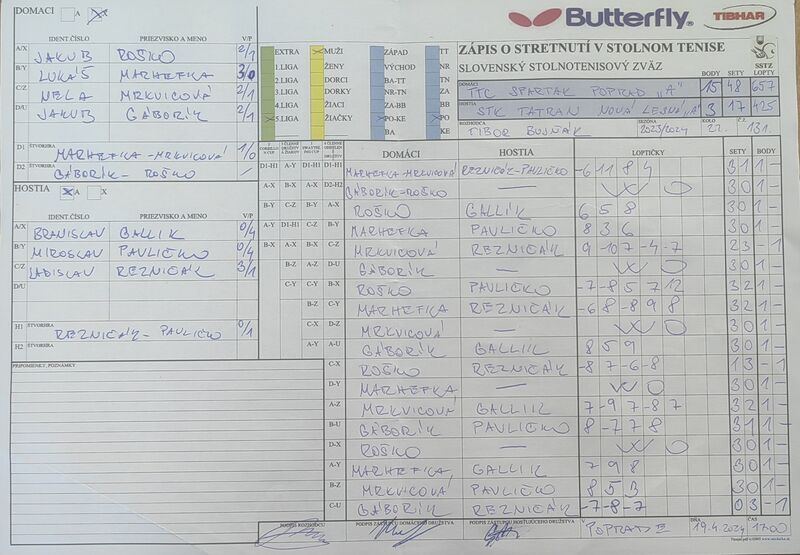 DOMÁCI A X
Butterfly
TIBHAR
IDENT. ČÍSLO PRIEZVISKO A MENO V/P
A/X JAKUB ROŠKO 2/1
B/Y LUKÁŠ MARHEFKA 3/0
C/Z NELA MRKVICOVÁ 2/1
D/U JAKUB GÁBORÍK 2/1
D1 ŠTVORHRA MARHEFKA-MRKVICOVÁ 1/0
D2 ŠTVORHRA GÁBORÍK-ROŠKO /
HOSTIA A X
IDENT. ČÍSLO PRIEZVISKO A MENO V/P
A/X BRANISLAV GALLIK 0/4
B/Y MIROSLAV PAVLIČKO 0/4
C/Z LADISLAV REZNIČÁK 3/1
D/U
H1 ŠTVORHRA REZNIČÁK-PAVLIČKO 0/1
H2 ŠTVORHRA
PRIPOMIENKY, POZNÁMKY
EXTRA MUŽI ZÁPAD TT
1.LIGA ŽENY VÝCHOD NR
2.LIGA DORCI BA-TT TN
3.LIGA DORKY NR-TN ZA
4.LIGA ŽIACI ZA-BB BB
5.LIGA ŽIAČKY PO-KE PO
BA KE
ZÁPIS O STRETNUTÍ V STOLNOM TENISE
SLOVENSKÝ STOLNOTENISOVÝ ZVÄZ
SSTZ
BODY SETY LOPTY
DOMÁCI TTC SPARTAK POPRAD "A" 15 48 657
HOSTIA STK TATRAN NOVÁ LESNÁ "A" 3 17 425
ROZHODCA TIBOR BUJŇÁK SEZÓNA 2023/2024 KOLO 22. Č.Z. 131.
DOMÁCI HOSTIA LOPTIČKY SETY BODY
D1-H1 A-Y D1-H1 D1-H1 MARHEFKA-MRKVICOVÁ REZNIČÁK-PAVLIČKO -6 11 8 4 3 1 1 -
A-X B-X A-X D2-H2 GÁBORÍK-ROŠKO — W O 3 0 1 -
B-Y C-Z B-Y A-X ROŠKO GALLIK 6 5 8 3 0 1 -
A-Y D1-H1 C-Z B-Y MARHEFKA PAVLIČKO 8 3 6 3 0 1 -
B-X A-X B-X C-Z MRKVICOVÁ REZNIČÁK 9 -10 7 -4 -7 2 3 - 1
B-Z A-Z D-U GÁBORÍK — W O 3 0 1 -
C-Y C-Y B-X ROŠKO PAVLIČKO -7 -8 5 7 12 3 2 1 -
B-Z C-Y MARHEFKA REZNIČÁK -6 8 -8 9 8 3 2 1 -
C-X D-Z MRKVICOVÁ — W O 3 0 1 -
A-Y A-U GÁBORÍK GALLIK 8 5 9 3 0 1 -
C-X ROŠKO REZNIČÁK -8 7 -6 -8 1 3 - 1
D-Y MARHEFKA — W O 3 0 1 -
A-Z MRKVICOVÁ GALLIK 7 -9 7 -8 7 3 2 1 -
B-U GÁBORÍK PAVLIČKO 8 -7 7 8 3 1 1 -
D-X ROŠKO — W O 3 0 1 -
A-Y MARHEFKA GALLIK 7 9 8 3 0 1 -
B-Z MRKVICOVÁ PAVLIČKO 8 5 3 3 0 1 -
C-U GÁBORÍK REZNIČÁK -7 -8 -7 0 3 - 1
PODPIS ROZHODCU PODPIS ZÁSTUPCU DOMÁCEHO DRUŽSTVA PODPIS ZÁSTUPCU HOSŤUJÚCEHO DRUŽSTVA V POPRADE DŇA 19.4.2024 ČAS 17:00